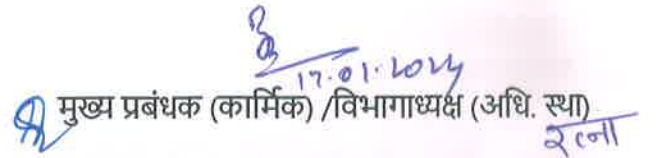 17.01.2024
मुख्य प्रबंधक (कार्मिक) /विभागाध्यक्ष (अधि. स्था)
रत्ना